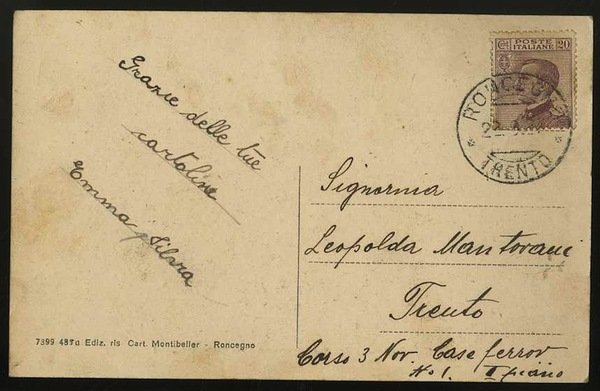 Grazie delle tue
cartoline
Emma Silvia
POSTE
ITALIANE
20
RONCEGNO
TRENTO
Signorina
Leopolda Mantovani
Trento
Corso 3 Nov. Case ferrov
No 1. I piano
7399 487a Ediz. ris Cart. Montibeller - Roncegno